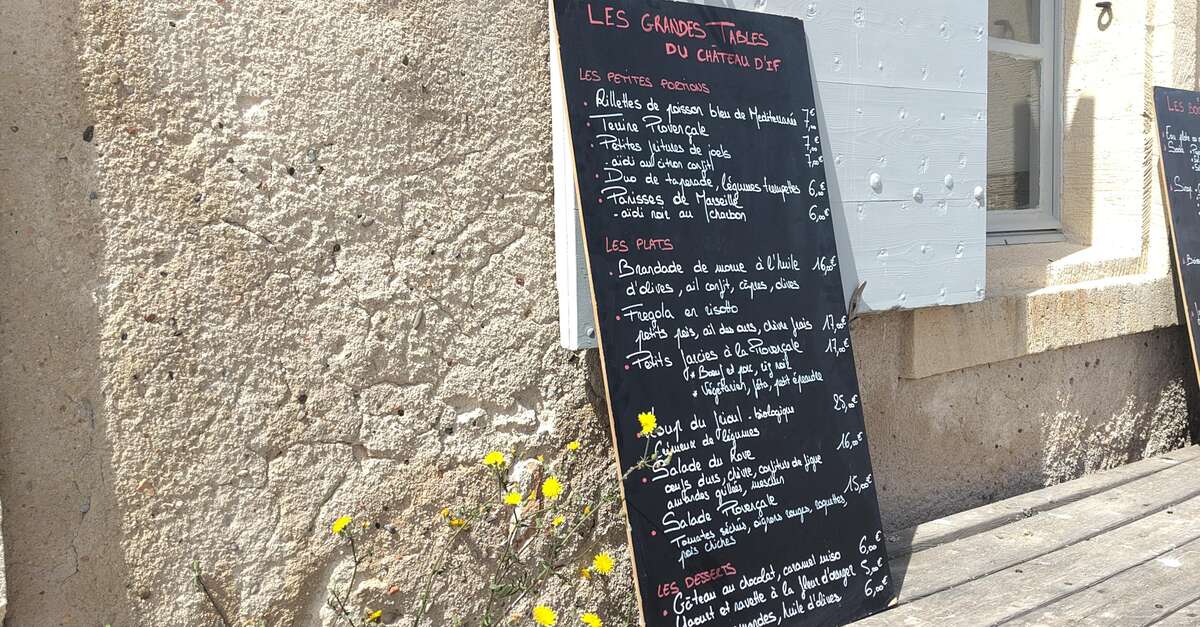 LES GRANDES TABLES
DU CHÂTEAU D'IF
LES PETITES PORTIONS
• Rillettes de poisson bleu de Mediterranée 7€
• Terrine Provençale 7,00
• Petites fritures de joels 7,00€
- aïoli au citron confit 7,00
• Duo de tapenade, légumes 6,00€
• Panisses de Marseille
- aïoli noir au charbon 6,00€
LES PLATS
• Brandade de morue à l'huile 16,00€
d'olives, ail confit, câpres, olives
• Fregola en risotto
petits pois, ail des ours, chèvre frais 17,00€
• Petits farcies à la Provençale 17,00€
* Bœuf et porc, riz noir
* Végétarien, féta, petit épeautre
Loup du frioul - biologique 25,00€
Crémeux de légumes
• Salade du Rove 16,00€
oeufs durs, chèvre, confiture de figue
amandes grillées, mesclun
• Salade Provençale 15,00€
Tomates séchés, oignons rouges, roquettes,
pois chiches
LES DESSERTS
• Gâteau au chocolat, caramel miso 6,00€
Yaourt et navette à la fleur d'oranger 5,00€
huile d'olives 6,00€
LES